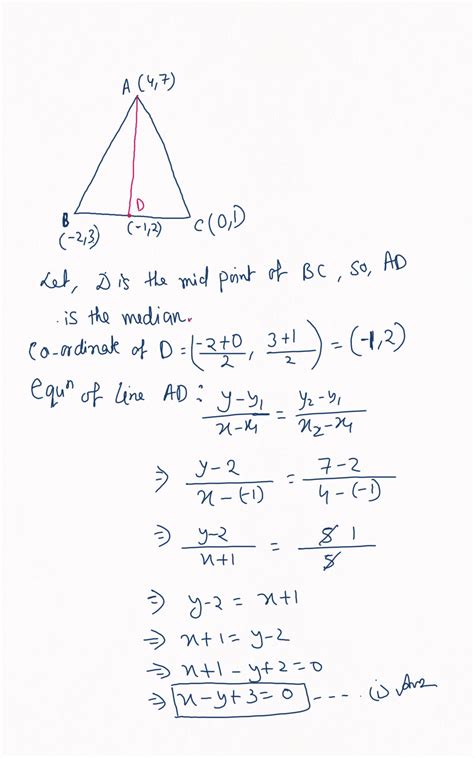 A (4,7)
D
B
(-2,3)
(-1,2)
C (0,1)
Let, D is the mid point of BC, so, AD
is the median.
Co-ordinate of D = (-2+0/2, 3+1/2) = (-1,2)
equⁿ of line AD : y-y₁/x-x₁ = y₂-y₁/x₂-x₁
⇒ y-2/x-(-1) = 7-2/4-(-1)
⇒ y-2/x+1 = 5 1/5
⇒ y-2 = x+1
⇒ x+1 = y-2
⇒ x+1-y+2=0
⇒ x-y+3=0 ---- (i) Ans